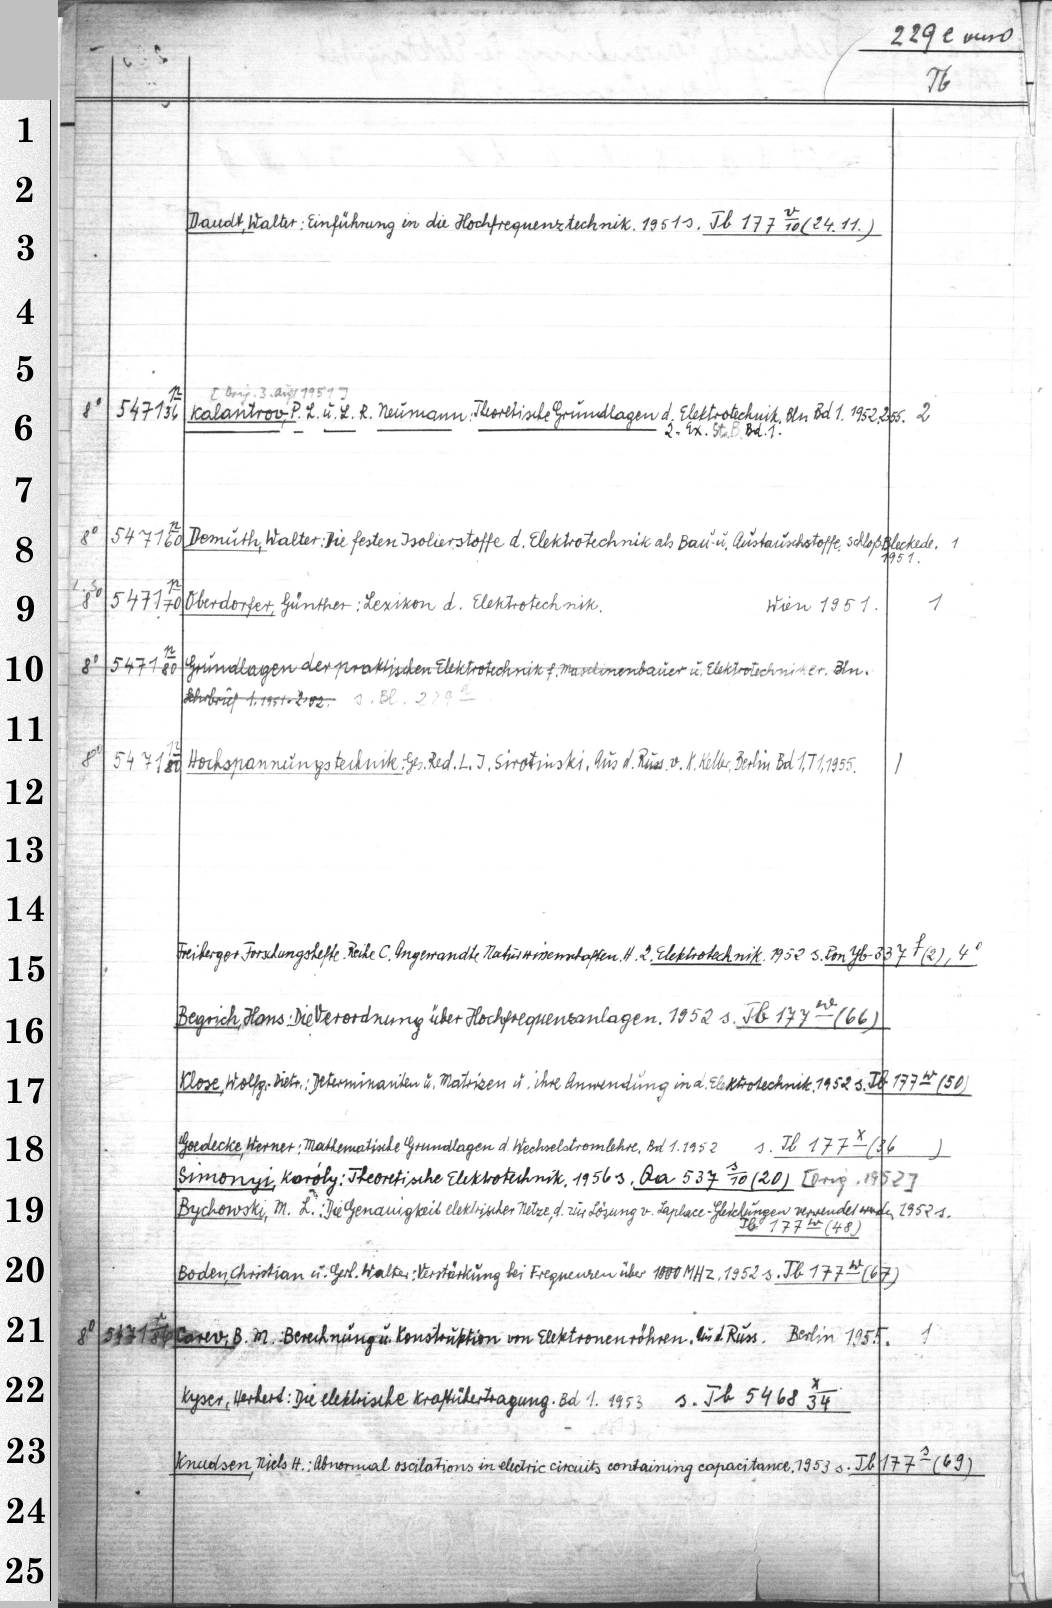 229 e verso
Tb
1
2
Daudt, Walter: Einführung in die Hochfrequenztechnik. 1951 s. Tb 177 v/10 (24.11.)
3
4
5
[Orig. 3. Aufl 1951]
8° 5471 n/36 Kalantrov, P. L. u. L. R. Neumann. Theoretische Grundlagen d. Elektrotechnik. Bln Bd 1. 1952. 2.55. 2
6
2. Ex. St. B. Bd. 1.
7
8° 5471 n/60 Demuth, Walter: Die festen Isolierstoffe d. Elektrotechnik als Bau- u. Austauschstoffe. Schloß Bleckede. 1
8
1951.
8° 5471 n/70 Oberdorfer, Günther: Lexikon d. Elektrotechnik. Wien 1951. 1
9
10
8° 5471 n/80 Grundlagen der praktischen Elektrotechnik f. Maschinenbauer u. Elektrotechniker. Bln.
Lehrbrief 1. 1951. 2. 52. s. Bl. 229
11
8° 5471 n/80 Hochspannungstechnik. Ges. Red. L. I. Sirotinski. Aus d. Russ. v. K. Keller. Berlin Bd 1, T 1, 1955. 1
12
13
14
Freiberger Forschungshefte. Reihe C. Angewandte Naturwissenschaften. H. 2. Elektrotechnik. 1952 s. Pon Yb 337 f (2), 4°
15
Begrich, Hans: Die Verordnung über Hochfrequenzanlagen. 1952 s. Tb 177 w (66)
16
Klose, Wolfg. Dietr.: Determinanten u. Matrizen u. ihre Anwendung in d. Elektrotechnik. 1952 s. Tb 177 w (50)
17
18
Goedecke, Werner: Mathematische Grundlagen d. Wechselstromlehre. Bd 1. 1952 s. Tb 177 x (36 )
Simonyi, Károly: Theoretische Elektrotechnik. 1956 s. Qa 537 s/10 (20) [Orig. 1952]
19
Bychowski, M. L.: Die Genauigkeit elektrischer Netze, d. zur Lösung v. Laplace-Gleichungen verwendet werden 1952 s.
Tb 177 w (48)
20
Boden, Christian u. Gerh. Walter: Verstärkung bei Frequenzen über 1000 MHz. 1952 s. Tb 177 w (67)
21
8° 5471 Carev, B. M.: Berechnung u. Konstruktion von Elektronenröhren. Aus d. Russ. Berlin 1955. 1
22
Kyser, Herbert: Die elektrische Kraftübertragung. Bd 1. 1953 s. Tb 5468 x/34
23
Knudsen, Niels H.: Abnormal oscilations in electric circuits containing capacitance. 1953 s. Tb 177 s (69)
24
25